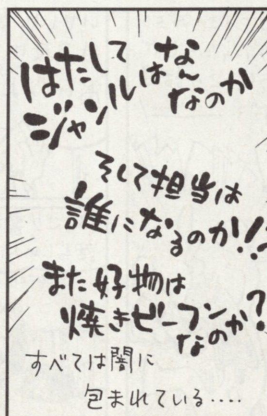 はたして
ジャンルは
な〜
なのか
そして担当は
誰になるのか!!
また好物は
焼きビーフン
なのか?
すべては闇に
包まれている‥‥